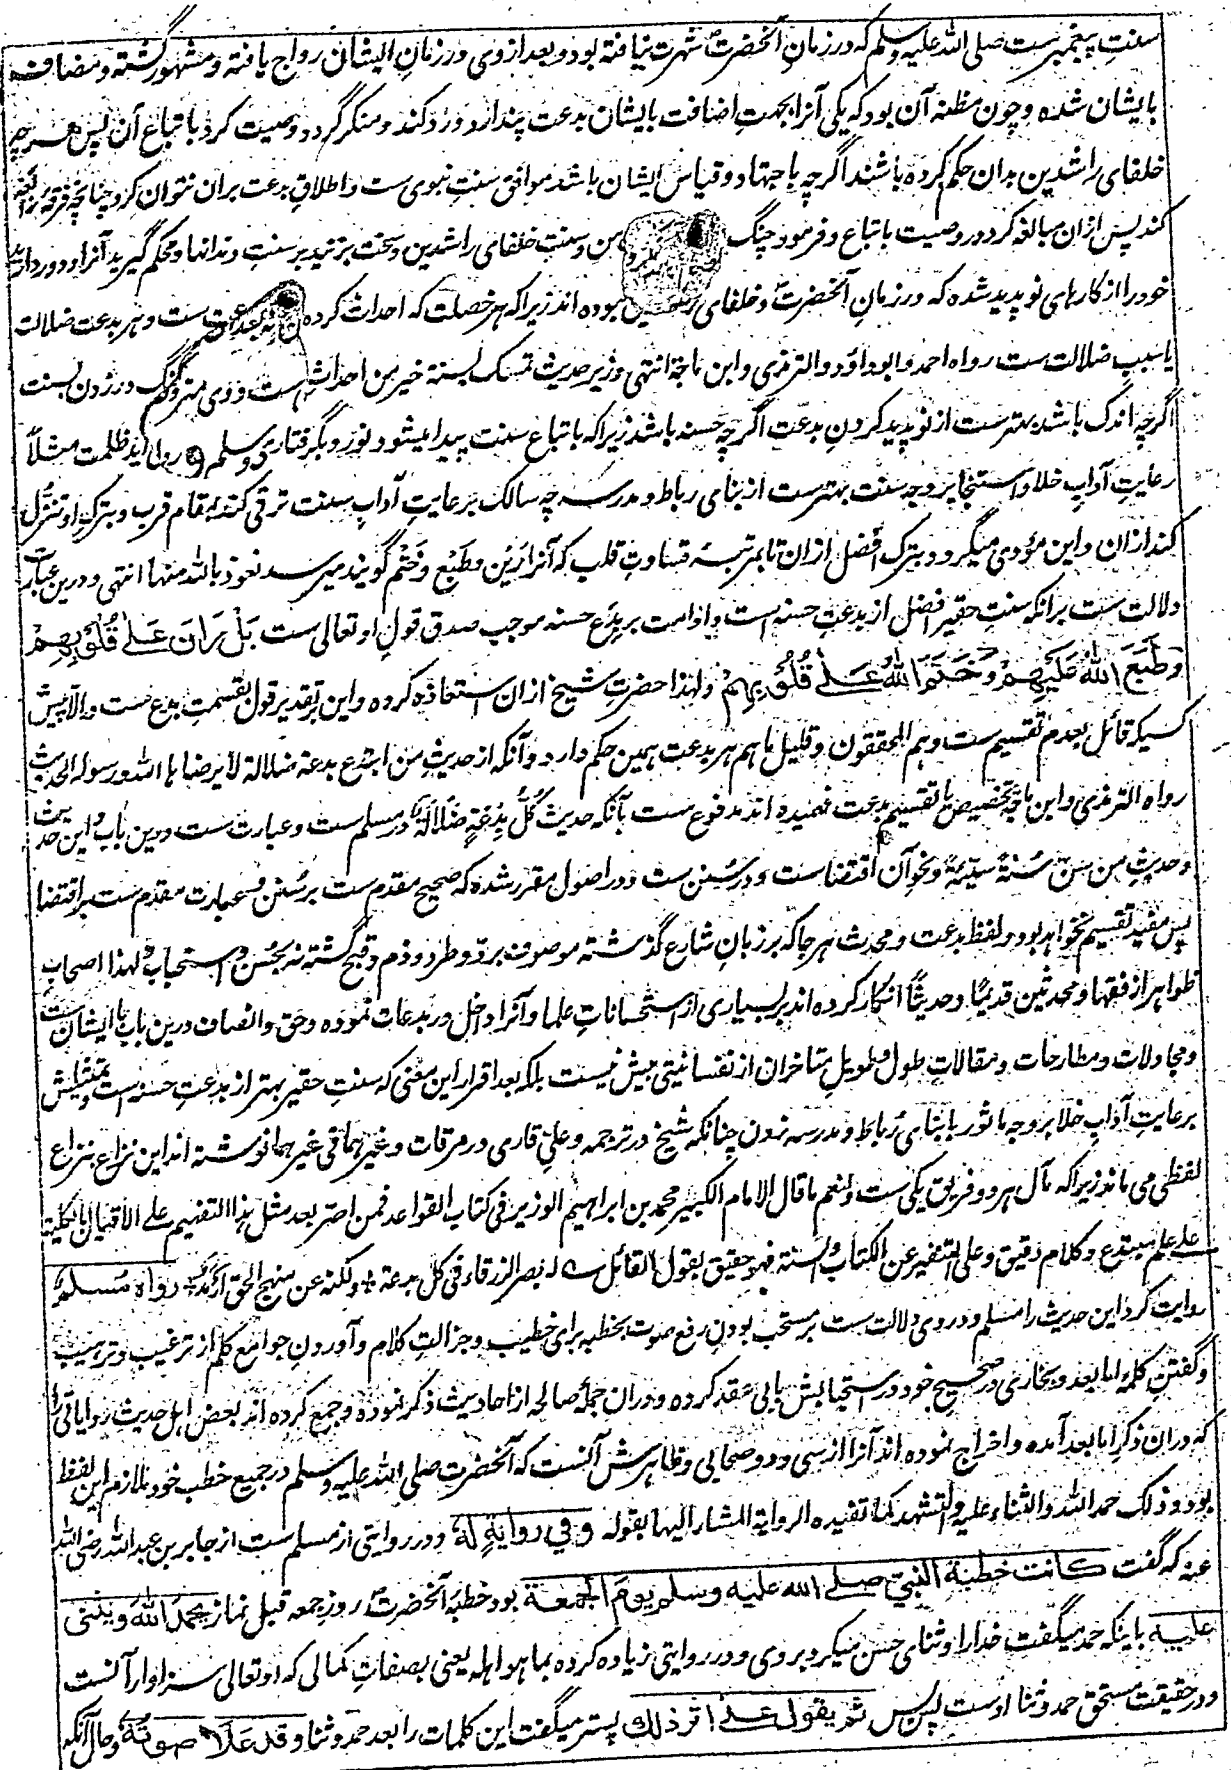 سنتِ پیغمبرست صلی الله علیه وسلم که در زمانِ آنحضرتؐ شهرت نیافته بود و بعد از وی در زمانِ ایشان رواج یافته و مشهور گشته و مضاف
بایشان شده و چون مظنه آن بود که یکی آنرا بجهتِ اضافت بایشان بدعت پندارد و رد کند و منکر گردد وصیت کرد باتباع آن پس هرچه
خلفای راشدین بدان حکم کرده باشند اگرچه باجتهاد و قیاس ایشان باشد موافق سنتِ نبوی ست و اطلاق بدعت بران نتوان کرد چنانچه فرقه زائغه
کند پس ازان مبالغه کرد در وصیت باتباع و فرمود چنگ من و سنتِ خلفای راشدین و سخت بزنید بر سنتِ دندانها و محکم گیرید آنرا و دور دارید
خود را از کارهای نو پدید شده که در زمانِ آنحضرتؐ و خلفای نبوده اند زیرا که هر خصلت که احداث کرده بدعت ست و هر بدعت ضلالت
یا سبب ضلالت ست رواه احمد و ابوداؤد والترمذی وابن ماجة انتهی و زیر حدیث تمسک بسنة خیر من احداث ست و وی چنگ در زدن بسنت
اگرچه اندک باشد بهترست از نو پدید کردنِ بدعت اگرچه حسنه باشد زیرا که باتباع سنت پیدا میشود نور و بگرفتاری ظلمت مثلاً
رعایتِ آدابِ خلا و استنجا بر وجه سنت بهترست از بنای رباط و مدرسه چه سالک برعایتِ آدابِ سنت ترقی کند بمقام قرب و بترکِ او تنزل
کند ازان و این مؤدی میگردد بترک افضل ازان تا بمرتبهٔ قساوتِ قلب که آنرا رَین و طَبْع و خَتْم گویند میرسد نعوذ بالله منها انتهی و درین عبارت
دلالت ست برانکه سنتِ حقیر افضل از بدعتِ حسنه است و ادامت بر بِدَع حسنه موجب صدق قول او تعالی ست بَلْ رَانَ عَلٰی قُلُوْبِهِمْ
وَطَبَعَ اللهُ عَلَیْهِمْ وَخَتَمَ اللهُ عَلٰی قُلُوْبِهِمْ ولهذا حضرتِ شیخ ازان استعاذه کرده و این بر تقدیر قول بقسمتِ بدع ست والا پیش
کسیکه قائل بعدم تقسیم ست وهم المحققون وقلیل ما هم هر بدعت همین حکم دارد و آنکه از حدیثِ من ابتدع بدعة ضلالة لا یرضاها الله ورسوله الحدیث
رواه الترمذی وابن ماجة تخصیص یا تقسیم بدعت فهمیده اند مدفوع ست بآنکه حدیث کُلُّ بِدْعَةٍ ضَلَالَةٌ در مسلم ست و عبارت ست درین باب و این حدیث
و حدیثِ من سن سُنةً سیئةً و نحو آن اقتضاست و در سُنن ست و در اصول مقرر شده که صحیح مقدم ست بر سُنن و عبارت مقدم ست بر اقتضا
پس مفید تقسیم نخواهد بود و لفظ بدعت و محدث هر جا که بر زبانِ شارع گذشته موصوف برد و طرد و ذم و قبح گشته نه بحُسن و استحباب و لهذا اصحابِ
ظواهر از فقها و محدثین قدیمًا و حدیثًا انکار کرده اند بر بسیاری از استحساناتِ علما و آنرا داخل در بدعات نموده و حق و انصاف درین باب با ایشان ست
و مجادلات و مطارحات و مقالاتِ طول و طویلِ متاخران از نفسانیتی بیش نیست بلکه بعد اقرارِ این معنی که سنتِ حقیر بهتر از بدعتِ حسنه است و تمثیلش
برعایتِ آدابِ خلا بر وجه ماثور با بنای رُباط و مدرسه نمودن چنانکه شیخ در ترجمه و علی قاری در مرقات و غیرهما فی غیرهما نوشته اند این نزاع بنزاع
لفظی می ماند زیرا که مآل هر دو فریق یکی ست ونعم ما قال الامام الکبیر محمد بن ابراهیم الوزیر فی کتاب القواعد فمن اصر بعد مثل هذا التفهیم علی الاقبال بالکلیة
علی علم مبتدع وکلام دقیق وعلی التنفیر عن الکتاب والسنة فهو حقیق بقول القائل ؎ له بصر الزرقاء فی کل بدعة ٭ ولکنه عن منهج الحق ارمد رواه مُسلِمٌ
روایت کرد این حدیث را مسلم و در وی دلالت ست بر مستحب بودنِ رفع صوت بخطبه برای خطیب و جزالتِ کلام و آوردنِ جوامع کلم از ترغیب و ترهیب
و گفتن کلمهٔ اما بعد و بخاری در صحیحِ خود در استحبابش بابی عقد کرده و دران جملهٔ صالحه از احادیث ذکر نموده و جمع کرده اند بعض اهل حدیث روایاتی را
که دران ذکرِ اما بعد آمده و اخراج نموده اند آنرا از سی و دو صحابی و ظاهرش آنست که آنحضرت صلی الله علیه وسلم در جمیع خطب خود ملازم این لفظ
بود وذلک حمد الله والثناء علیه والتشهد کما تفیده الروایة المشار الیها بقوله وَفِی رِوَایَةٍ لَهٗ و در روایتی از مسلم ست از جابر بن عبدالله رضی الله
عنه که گفت کَانَت خُطبَةُ النَّبِیِّ صلی الله علیه وسلم یَومَ الجُمعَة بود خطبهٔ آنحضرتؐ روزِ جمعه قبل نماز یَحمَدُ اللهَ ویُثنی
عَلَیه باینکه حمد میگفت خدا را و ثنای حسن میکرد بر وی و در روایتی زیاده کرده بما هو اهله یعنی بصفاتِ کمالی که او تعالی سزاوار آنست
و در حقیقت مستحق حمد و ثنا اوست پس ثم یقول علی اثر ذلک پستر میگفت این کلمات را بعد حمد و ثنا وقد عَلَا صَوتُهٗ و حال آنکه